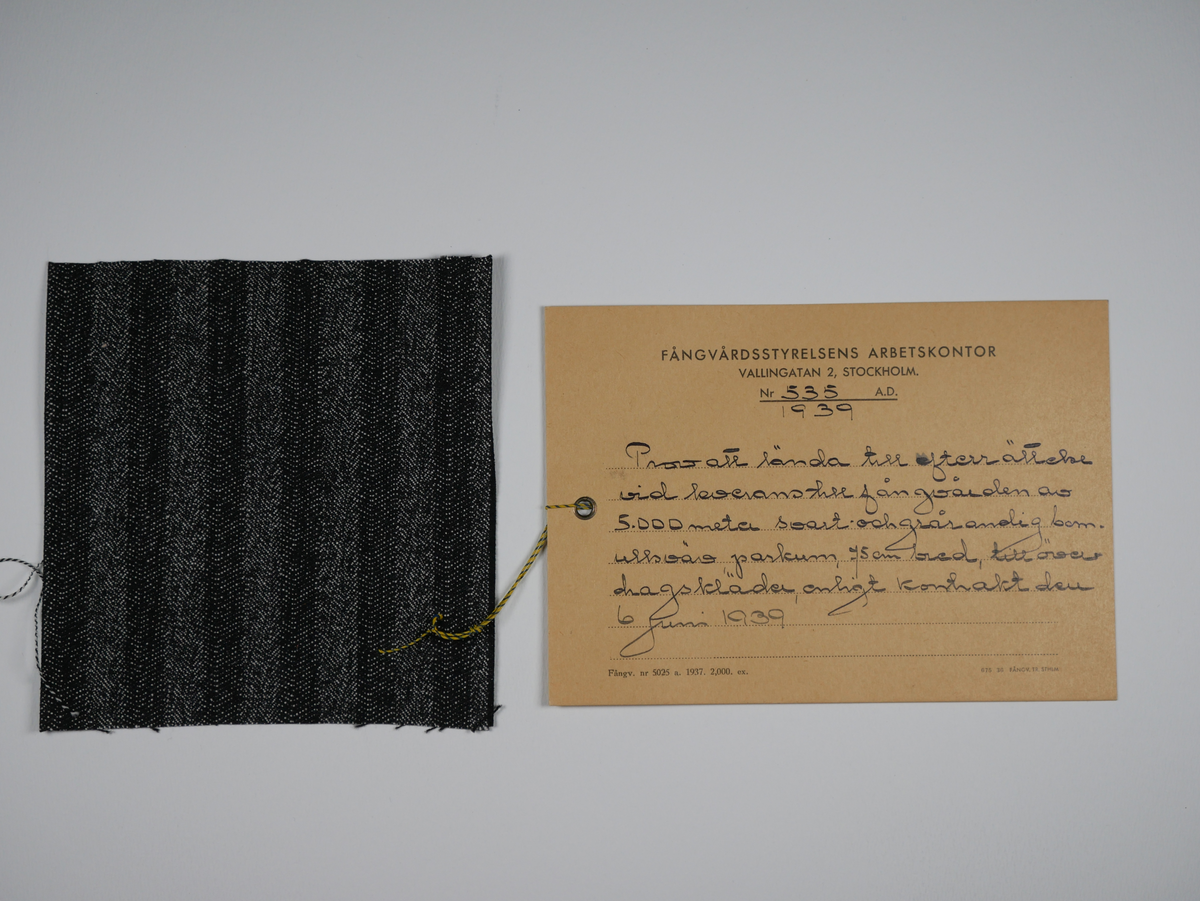 FÅNGVÅRDSSTYRELSENS ARBETSKONTOR
VALLINGATAN 2, STOCKHOLM.
Nr 535 A.D.
1939
Prov att lända till efterrättelse
vid leverans till fångvården av
5.000 meter svart- och grårandig bom-
ullsväv, parkum, 75 cm bred, till över-
dragskläder, enligt kontrakt den
6 juni 1939
Fångv. nr 5025 a. 1937. 2,000. ex.